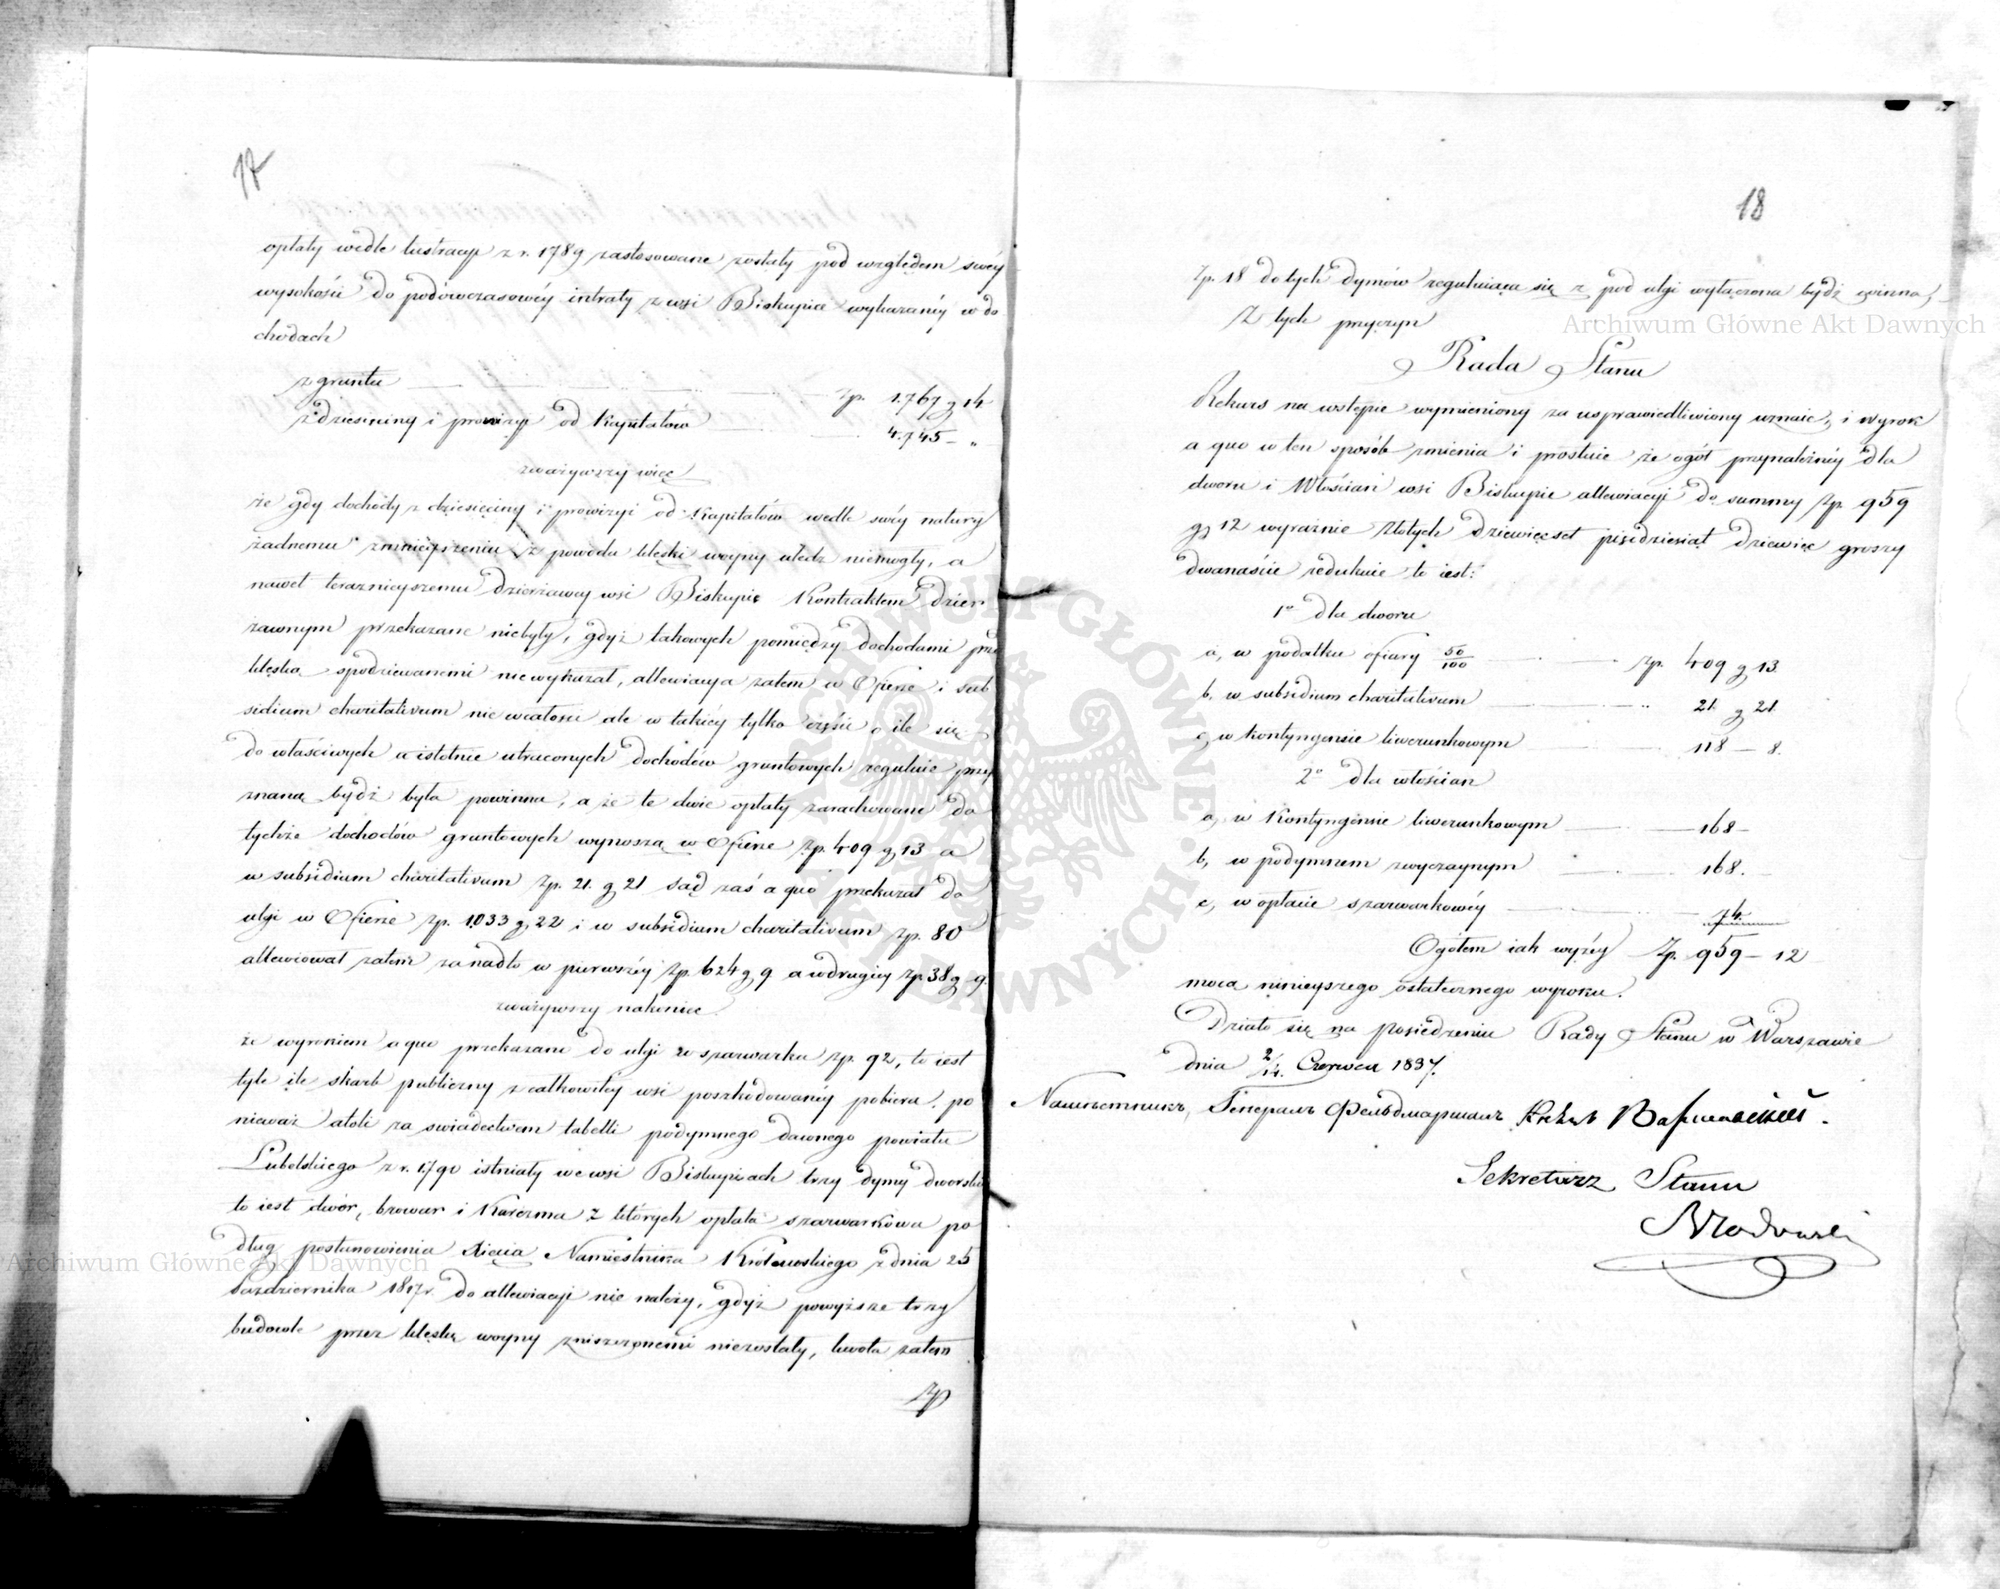 17
opłaty wedle lustracyi z r. 1789 zastosowane zostały pod względem swéy
wysokości do podówczasowéy intraty z wsi Biskupice wykazanéy w do
chodach
z gruntu Zp. 1.767 g 14
z dziesięciny i prowizyi od Kapitałów 4.745 - "
zważywszy więc
że gdy dochody z dziesięciny i prowizyi od Kapitałów wedle swéy natury
żadnemu zmnieyszeniu z powodu klęski woyny uledz niemogły, a
nawet teraznieyszemu dzierżawcy wsi Biskupic Kontraktem dzier
żawnym przekazane niebyły, gdyż takowych pomiędzy dochodami prze
klęską spodziewanemi niewykazał, allewiacya zatem w Ofierze i sub
sidium charitativum nie wcałości ale w takiéy tylko części o ile się
do właściwych a istotnie utraconych dochodów gruntowych reguluie przy
znaną bydź była powinna, a że te dwie opłaty zarachowane do
tychże dochodów gruntowych wynoszą w Ofierze Zp. 409 g 13 a
w subsidium charitativum Zp. 21. g 21 sąd zaś a quo przekazał do
ulgi w Ofierze Zp. 1033 g 22 i w subsidium charitativum Zp. 80
allewiował zatem zanadto w pierwszéy Zp. 624 g 9 a w drugiey Zp. 38 g 9.
zważywszy nakoniec
że wyrokiem a quo przekazano do ulgi w szarwarku Zp. 92, to iest
tyle ile skarb publiczny z całkowitéy wsi poszkodowanéy pobiera, po
nieważ atoli za swiadectwem tabelli podymnego dawnego powiatu
Lubelskiego z r. 1790 istniały we wsi Biskupicach trzy dymy dworskie
to iest dwór, browar i Karczma z których opłata szarwarkowa po
dług postanowienia Xięcia Namiestnika Królewskiego z dnia 25
Października 1817 r. do allewiacyi nie należy, gdyż powyższe trzy
budowle przez klęskę woyny zniszczonemi niezostały, kwota zatem
Zp
18
Zp. 18 do tych dymów reguluiąca się z pod ulgi wyłączona bydź winna,
Z tych przyczyn
Rada Stanu
Rekurs na wstępie wymieniony za usprawiedliwiony uznaie, i wyrok
a quo w ten sposób zmienia i prostuie że ogół przynależnéy dla
dworu i Włościan wsi Biskupic allewiacyi do summy Zp. 959
g 12 wyraźnie Złotych dziewięćset pięćdziesiąt dziewięć groszy
dwanaście redukuie to iest:
1o dla dworu
a, w podatku ofiary 50/100 Zp. 409 g 13.
b, w subsidium charitativum 21. g 21.
c, w kontyngensie liwerunkowym 118 - 8.
2o dla włościan
a, w Kontyngensie liwerunkowym 168 -
b, w podymnem zwyczaynym 168. -
c, w opłacie szarwarkowéy 74.
Ogółem iak wyżéy Zp. 959 - 12
mocą ninieyszego ostatecznego wyroku.
Działo się na posiedzeniu Rady Stanu w Warszawie
dnia 2/14. Czerwca 1837.
Намѣстникъ, Генералъ Фельдмаршалъ Князь Варшавскій.
Sekretarz Stanu
Archiwum Główne Akt Dawnych
Archiwum Główne Akt Dawnych
ARCHIWUM GŁÓWNE AKT DAWNYCH